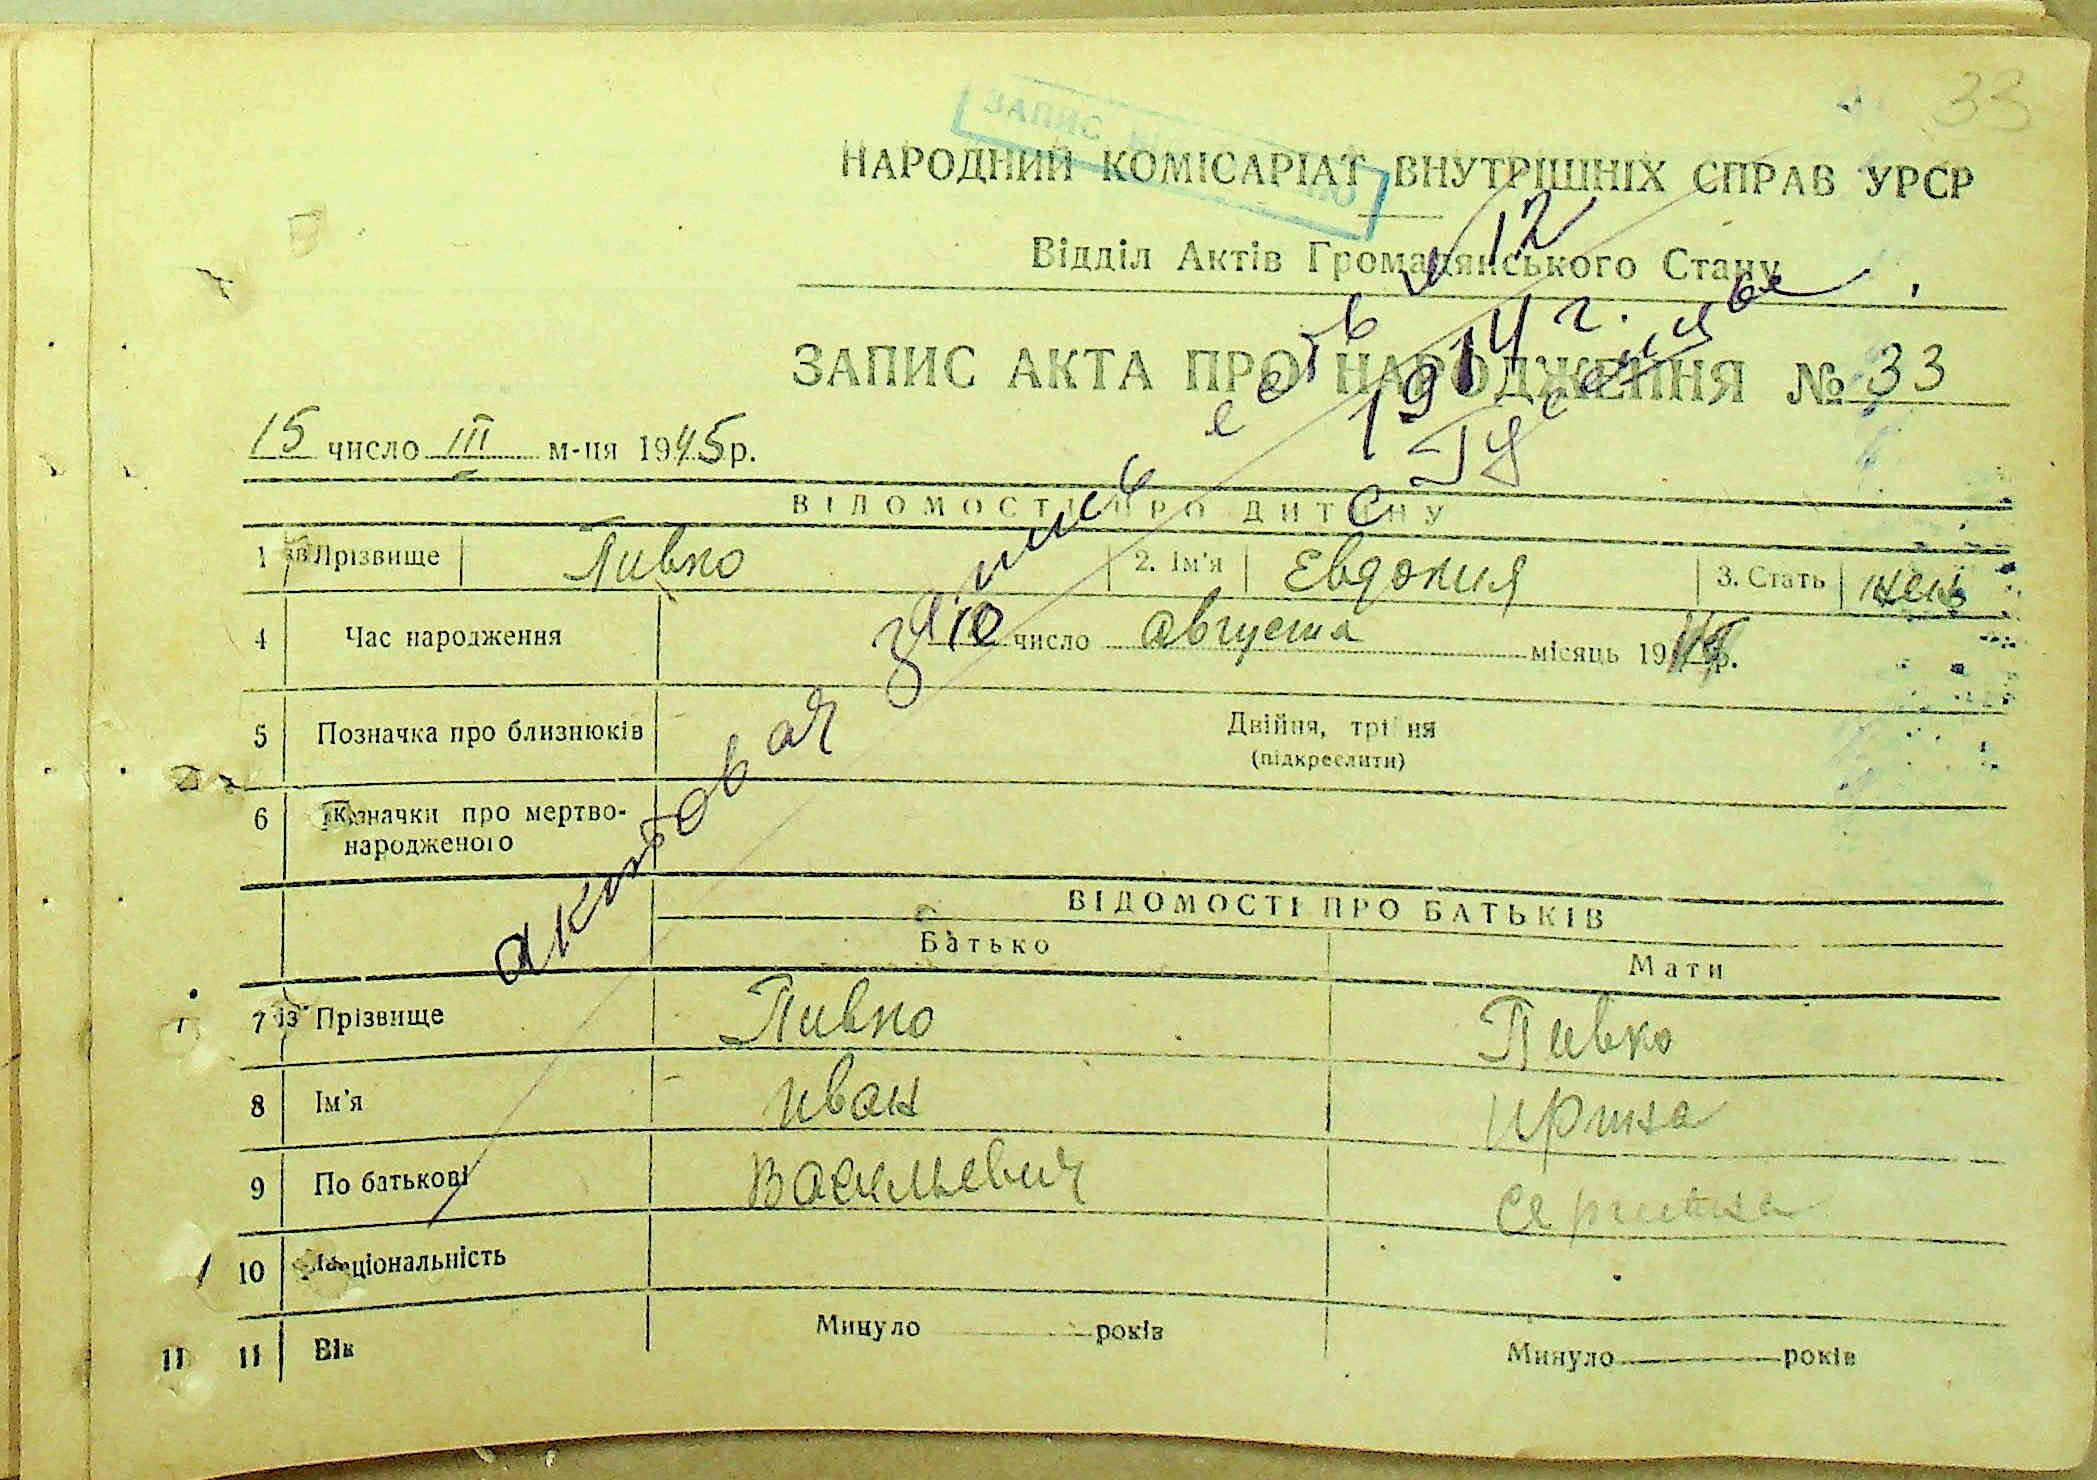 33
ЗАПИС
НАРОДНИЙ КОМІСАРІАТ ВНУТРІШНІХ СПРАВ УРСР
Відділ Актів Громадянського Стану
ЗАПИС АКТА ПРО НАРОДЖЕННЯ № 33
15 число III м-ця 1945 р.
актовая запись есть № 12
1914 г.
с
ВІДОМОСТІ ПРО ДИТИНУ
1 Прізвище Пивко 2. Ім'я Евдокия 3. Стать жен
4 Час народження 10 число августа місяць 19 р.
5 Позначка про близнюків Двійня, трійня
(підкреслити)
6 Позначки про мертво-
народженого
ВІДОМОСТІ ПРО БАТЬКІВ
Батько Мати
7 Прізвище Пивко Пивко
8 Ім'я Иван
9 По батькові Васильевич
10 Національність
11 11 Вік Минуло років Минуло років